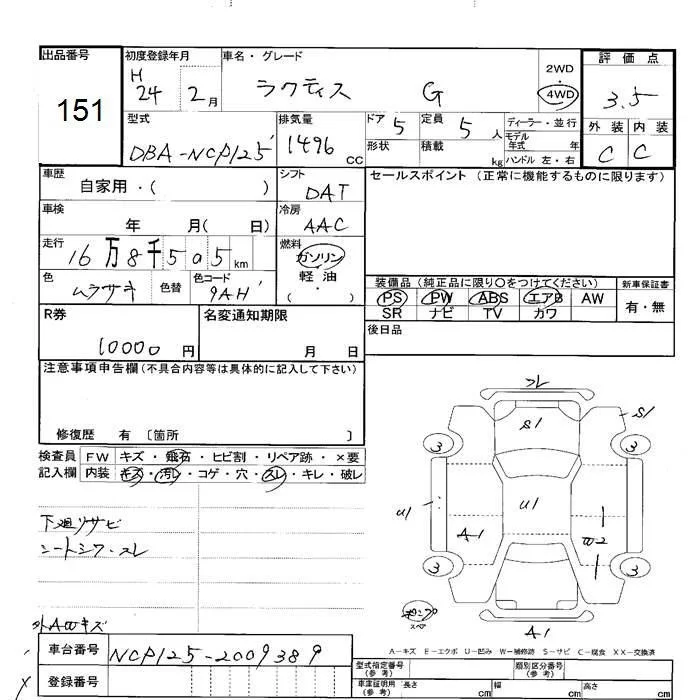 出品番号
151
初度登録年月
H
24 2月
車名・グレード
ラクティス G
2WD
・
4WD
評価点
3.5
外装 内装
C C
型式
DBA-NCP125
排気量
1496 CC
ドア 5
定員 5 人
形状
積載 kg
ディーラー・並行
モデル
年式 年
ハンドル 左・右
車歴
自家用・( )
シフト
DAT
セールスポイント(正常に機能するものに限ります)
車検
年 月( 日)
冷房
AAC
走行
16万8千505km
燃料
ガソリン
・
軽油
・
( )
色
ムラサキ
色替
色コード
9AH
装備品(純正品に限り○をつけてください)
新車保証書
PS PW ABS エアB AW
SR ナビ TV カワ
有・無
R券
10000円
名変通知期限
月 日
後日品
注意事項申告欄(不具合内容等は具体的に記入して下さい)
修復歴 有 〔箇所 〕
検査員
記入欄
FW キズ・飛石・ヒビ割・リペア跡・×要
内装 キズ・汚レ・コゲ・穴・スレ・キレ・破レ
下廻リサビ
シートシワ・スレ
外AWキズ
スレ
S1
S1
3
3
U1
U1
A1
W2
3
3
ポンプ
スペア
A1
A-キズ E-エクボ U-凹み W-補修跡 S-サビ C-腐食 XX-交換済
車台番号
NCP125-2009389
登録番号
型式指定番号
(参考)
類別区分番号
(参考)
車庫証明用
(参考)
長さ cm
幅 cm
高さ cm